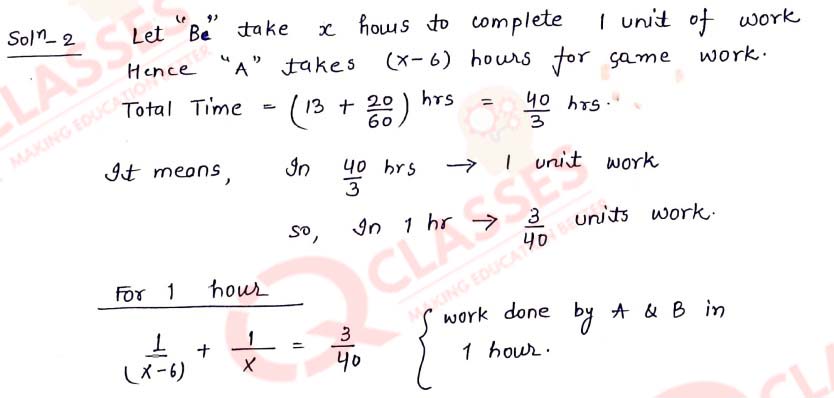 Solⁿ-2 Let "Be" take x hours to complete 1 unit of work
Hence "A" takes (x-6) hours for same work.
Total Time = (13 + 20/60) hrs = 40/3 hrs.
It means, In 40/3 hrs → 1 unit work
so, In 1 hr → 3/40 units work.
For 1 hour
1/(x-6) + 1/x = 3/40 { work done by A & B in
1 hour.
CLASSES
MAKING EDUCATION BETTER
CLASSES
MAKING EDUCATION BETTER